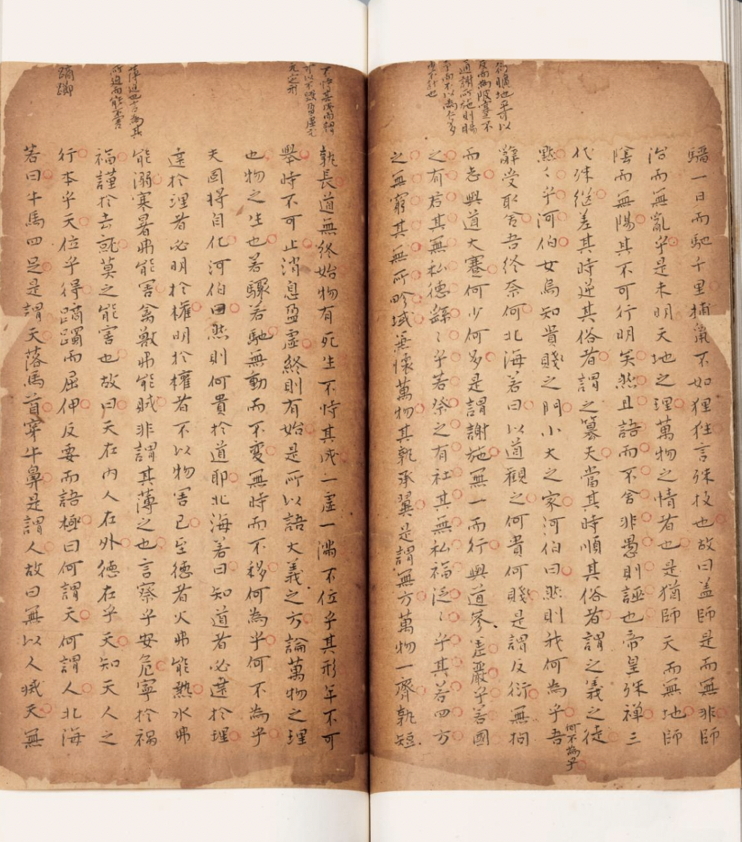 驥一日而馳千里捕鼠不如狸狌言殊技也故曰盖師是而無非師
治而無亂乎是未明天地之理萬物之情者也是猶師天而無地師
陰而無陽其不可行明矣然且語而不舍非愚則誣也帝皇殊禪三
代殊継差其時逆其俗者謂之簒夫當其時順其俗者謂之義之徒
默〻乎河伯女烏知貴賤之門小大之家河伯曰然則我何為乎
何不為乎
吾
辭受取舍吾終奈何北海若曰以道觀之何貴何賤是謂反衍無拘
而志與道大蹇何少何多是謂謝施無一而行與道參差嚴乎若國
之有君其無私德繇〻乎若祭之有社其無私福泛〻乎其若四方
之無窮其無所畛域兼懷萬物其孰承翼是謂無方萬物一齊孰短
孰長道無終始物有死生不恃其成一虛一滿不位乎其形年不可
舉時不可止消息盈虛終則有始是所以語大義之方論萬物之理
也物之生也若驟若馳無動而不變無時而不移何為乎何不為乎
夫固將自化河伯曰然則何貴於道耶北海若曰知道者必達於理
達於理者必明於權明於權者不以物害己至德者火弗能熱水弗
能溺寒暑弗能害禽獸弗能賊非謂其薄之也言察乎安危寧於禍
福謹於去就莫之能害也故曰天在內人在外德在乎天知天人之
行本乎天位乎得蹢躅而屈伸反要而語極曰何謂天何謂人北海
若曰牛馬四足是謂天落馬首穿牛鼻是謂人故曰無以人滅天無